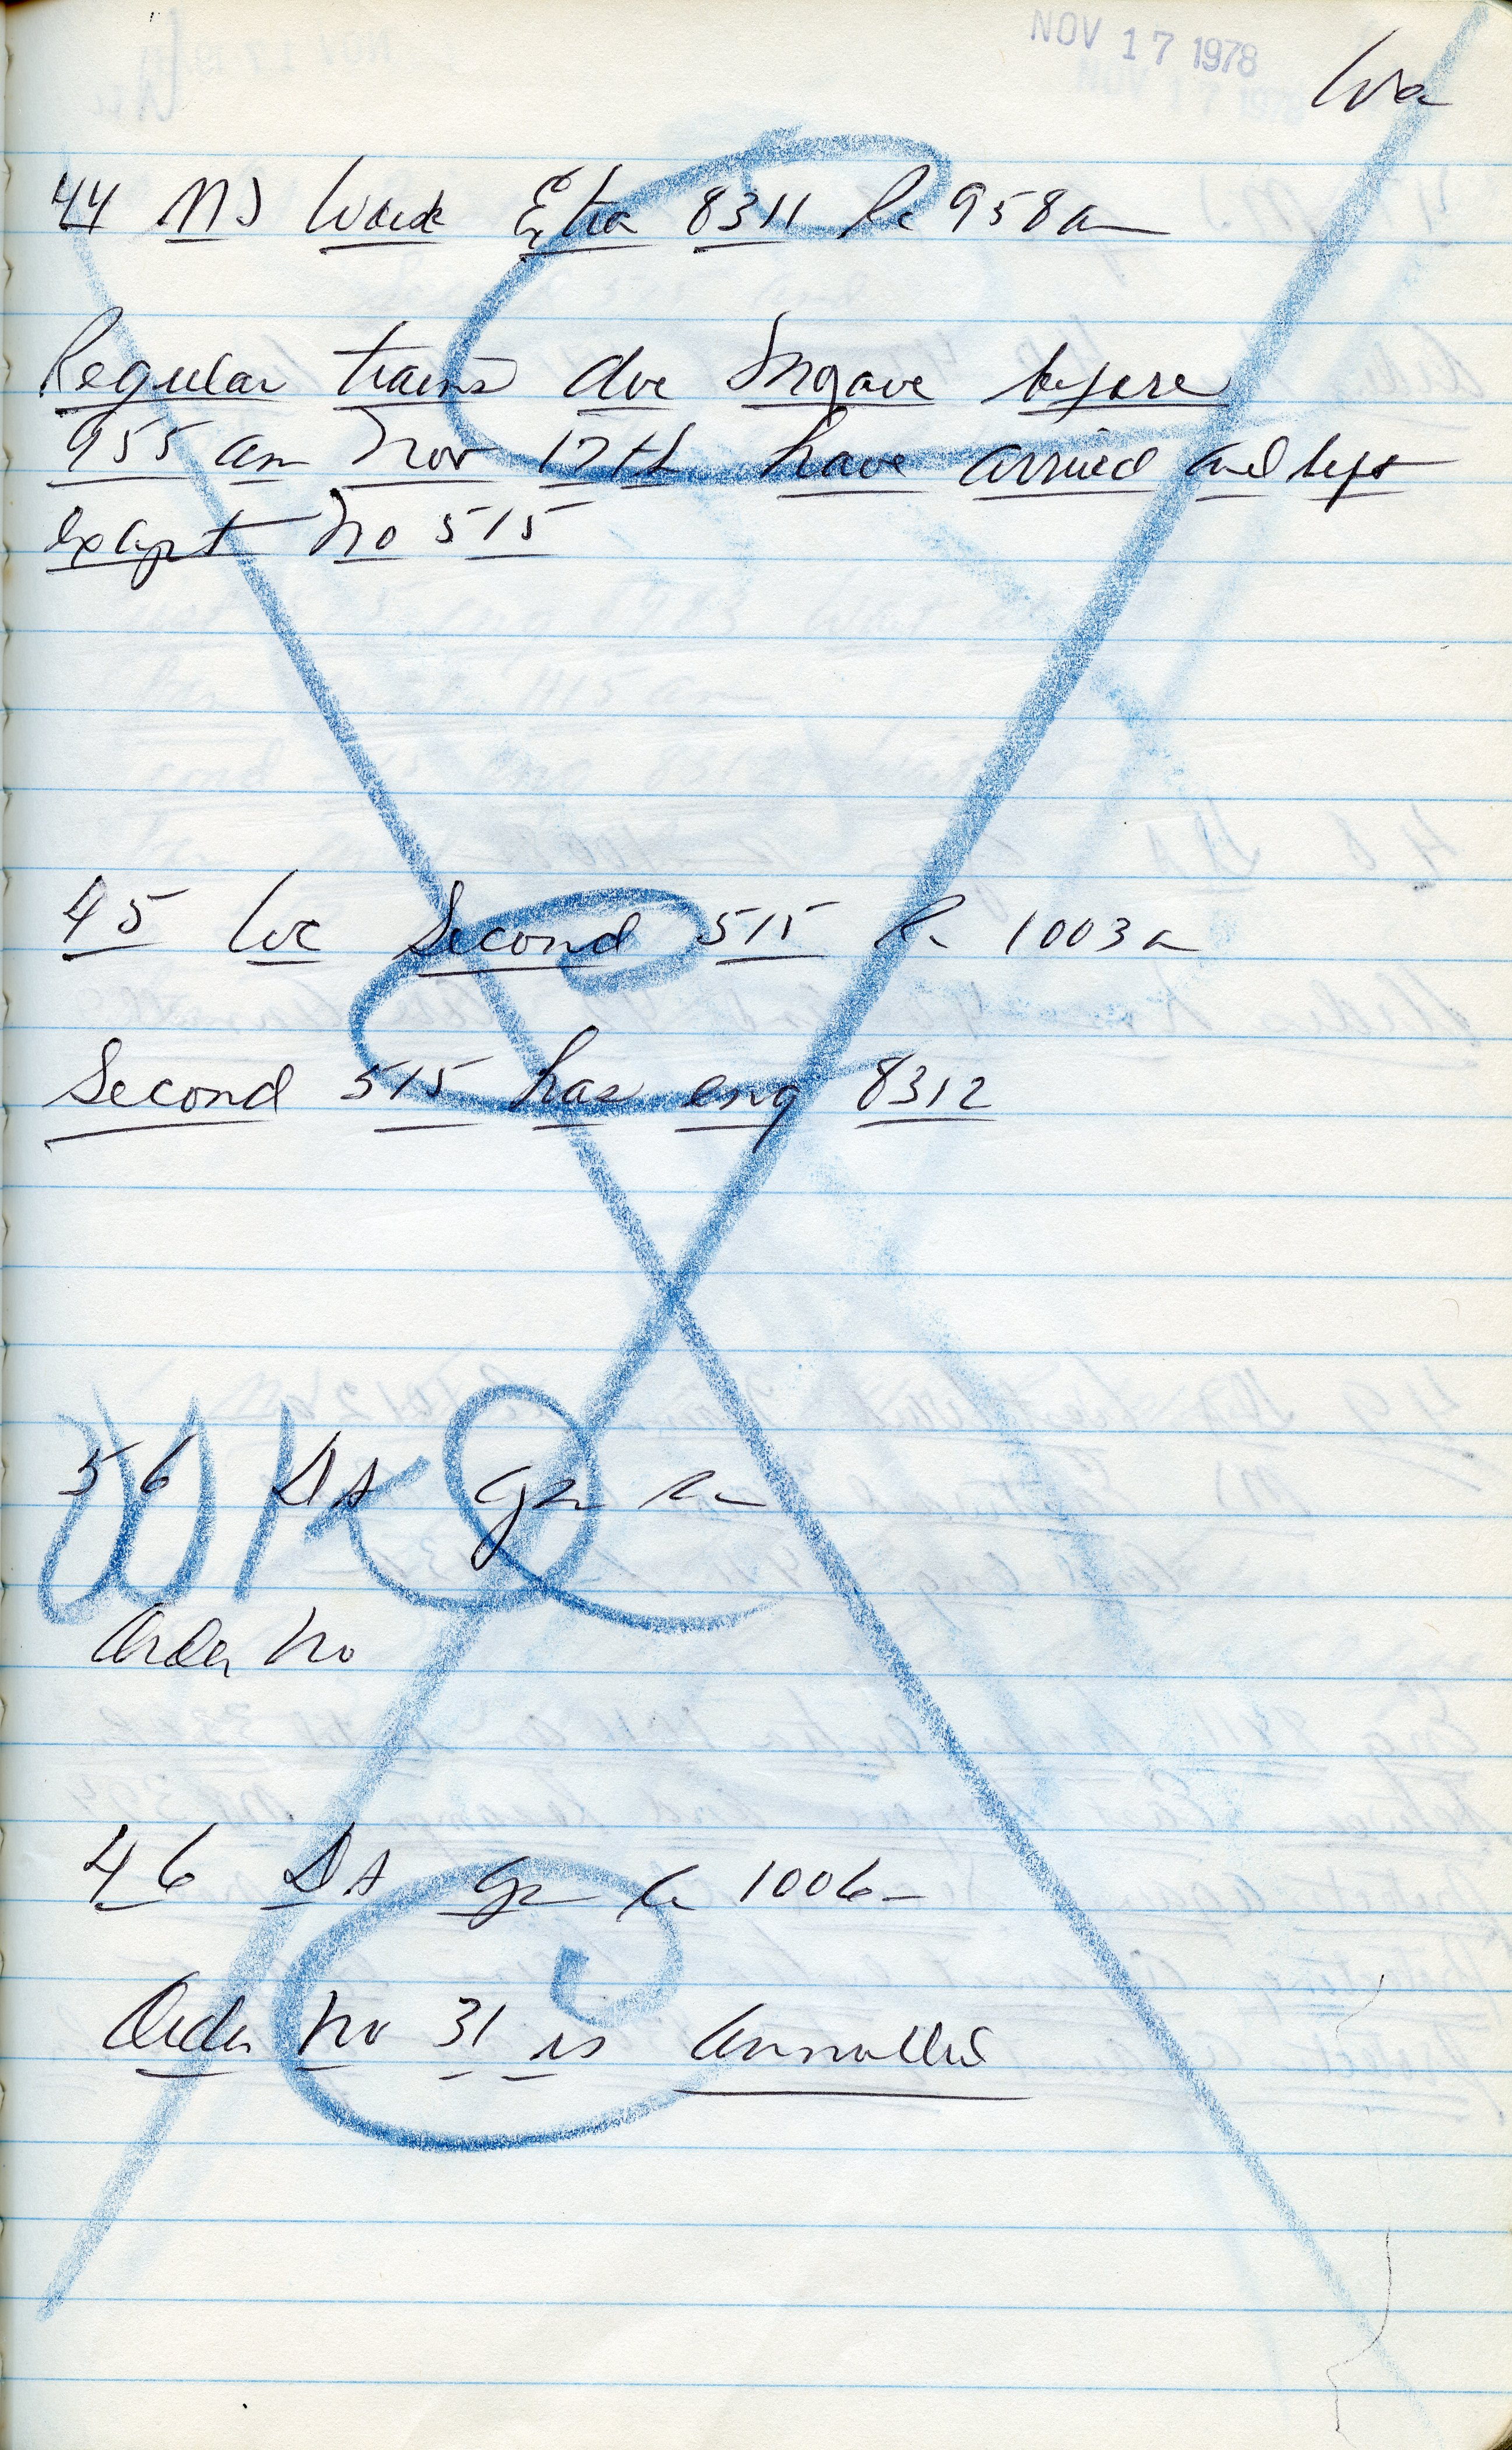 NOV 17 1978
44 NJ Work Extra 8311 958a
Regular trains due before
955 am Nov 17th have arrived and left
except No 515
45 Second 515 1003a
Second 515 has eng 8312
WK
56 DS
Order No
46 DS 1006a
Order No 31 is annulled